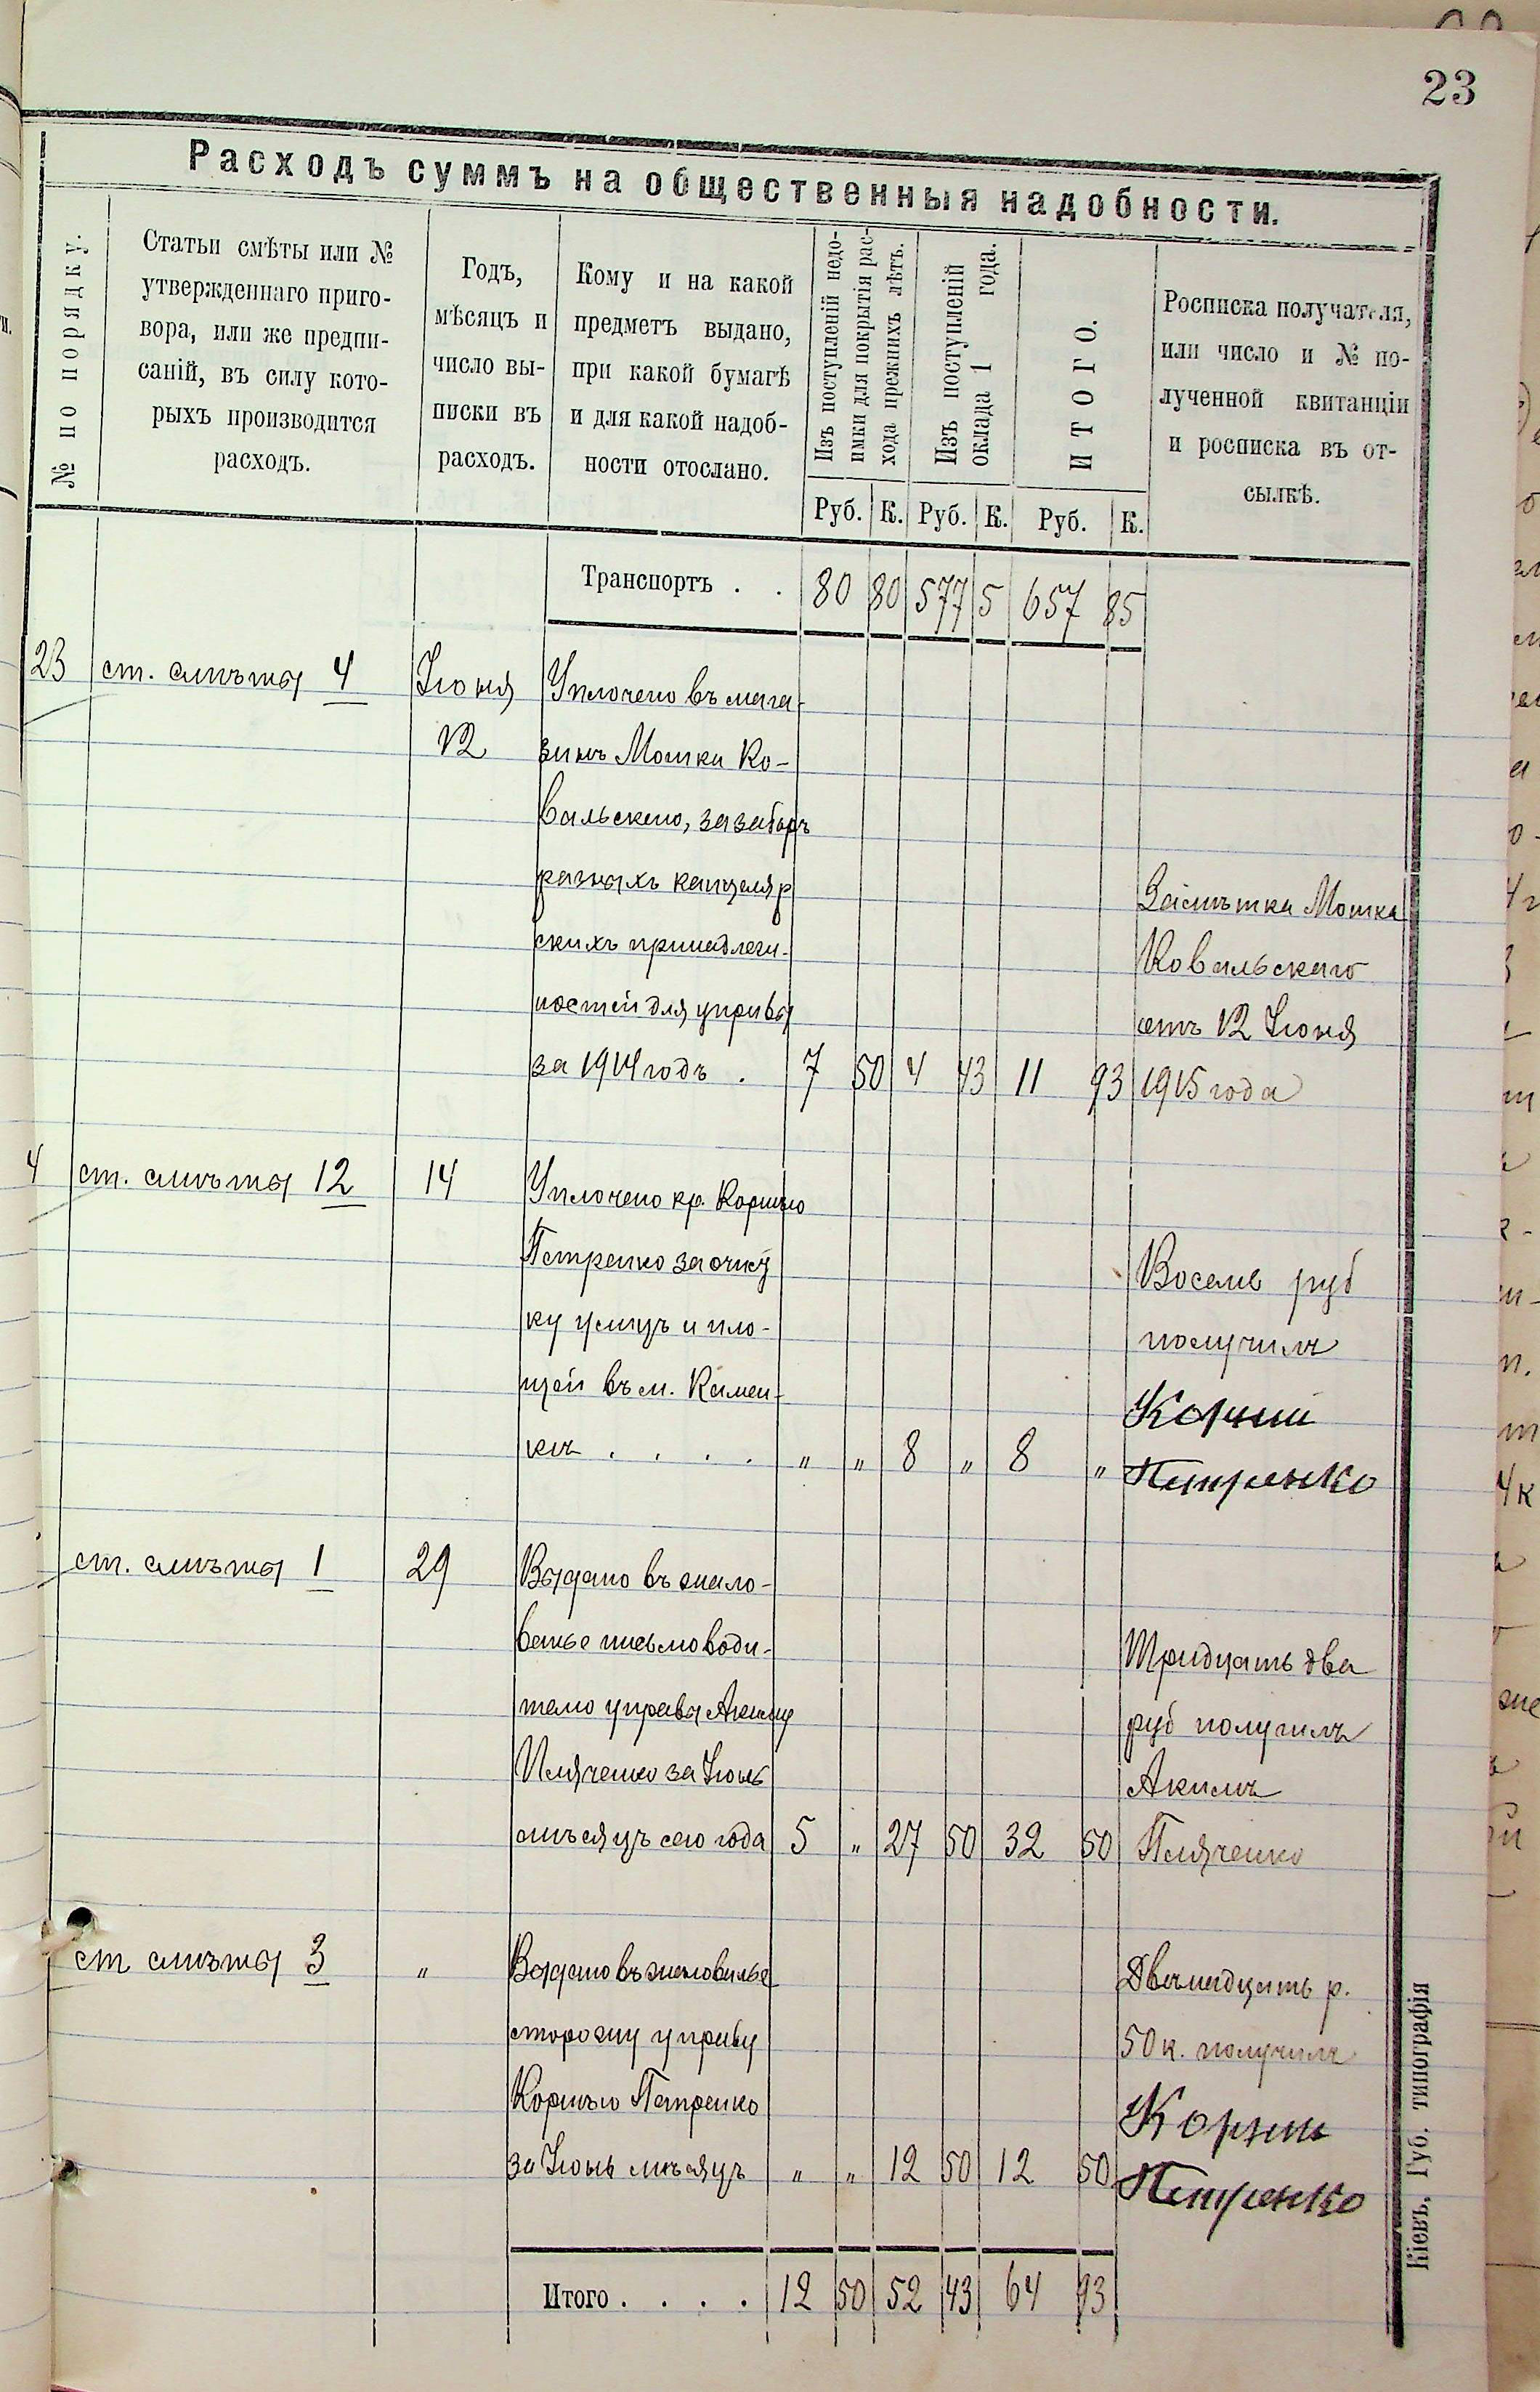 23
Расходъ суммъ на общественныя надобности.
№ по порядку.
Статьи смѣты или №
утвержденнаго приго-
вора, или же предпи-
саній, въ силу кото-
рыхъ производится
расходъ.
Годъ,
мѣсяцъ и
число вы-
писки въ
расходъ.
Кому и на какой
предметъ выдано,
при какой бумагѣ
и для какой надоб-
ности отослано.
Изъ поступленій недо-
имки для покрытія рас-
хода прежнихъ лѣтъ.
Изъ поступленій
оклада 1 года.
Итого.
Росписка получателя,
или число и № по-
лученной квитанціи
и росписка въ от-
сылкѣ.
Руб. К. Руб. К. Руб. К.
Транспортъ . . 80 80 577 5 657 85
23 ст. смѣты 4 Іюня Уплочено въ мага-
12 зинъ Мошки Ко-
вальскаго, за заборъ
разныхъ канцеляр
скихъ принадлеж-
ностей для управы
за 1914 годъ . 7 50 4 43 11 93
Замѣтка Мошка
Ковальскаго
отъ 12 Іюня
1915 года
4 ст. смѣты 12 14 Уплочено кр. Корнѣю
Петренко за очист
ку улицъ и пло-
щей въ м. Камен-
кѣ . . . . " " 8 " 8 "
Восемь руб
получилъ
Корній
Петренко
ст. смѣты 1 29 Выдано въ жало-
ванье письмоводи-
телю управы Акиму
Пляченко за Іюнь
мѣсяцъ сего года 5 " 27 50 32 50
Тридцать два
руб получилъ
Акимъ
Пляченко
ст смѣты 3 " Выдано въ жалованье
сторожу управы
Корнѣю Петренко
за Іюнь мѣсяцъ " " 12 50 12 50
Двѣнадцать р.
50 к. получилъ
Корній
Петренко
Итого . . . . 12 50 52 43 64 93
Кіевъ, Губ. типографія